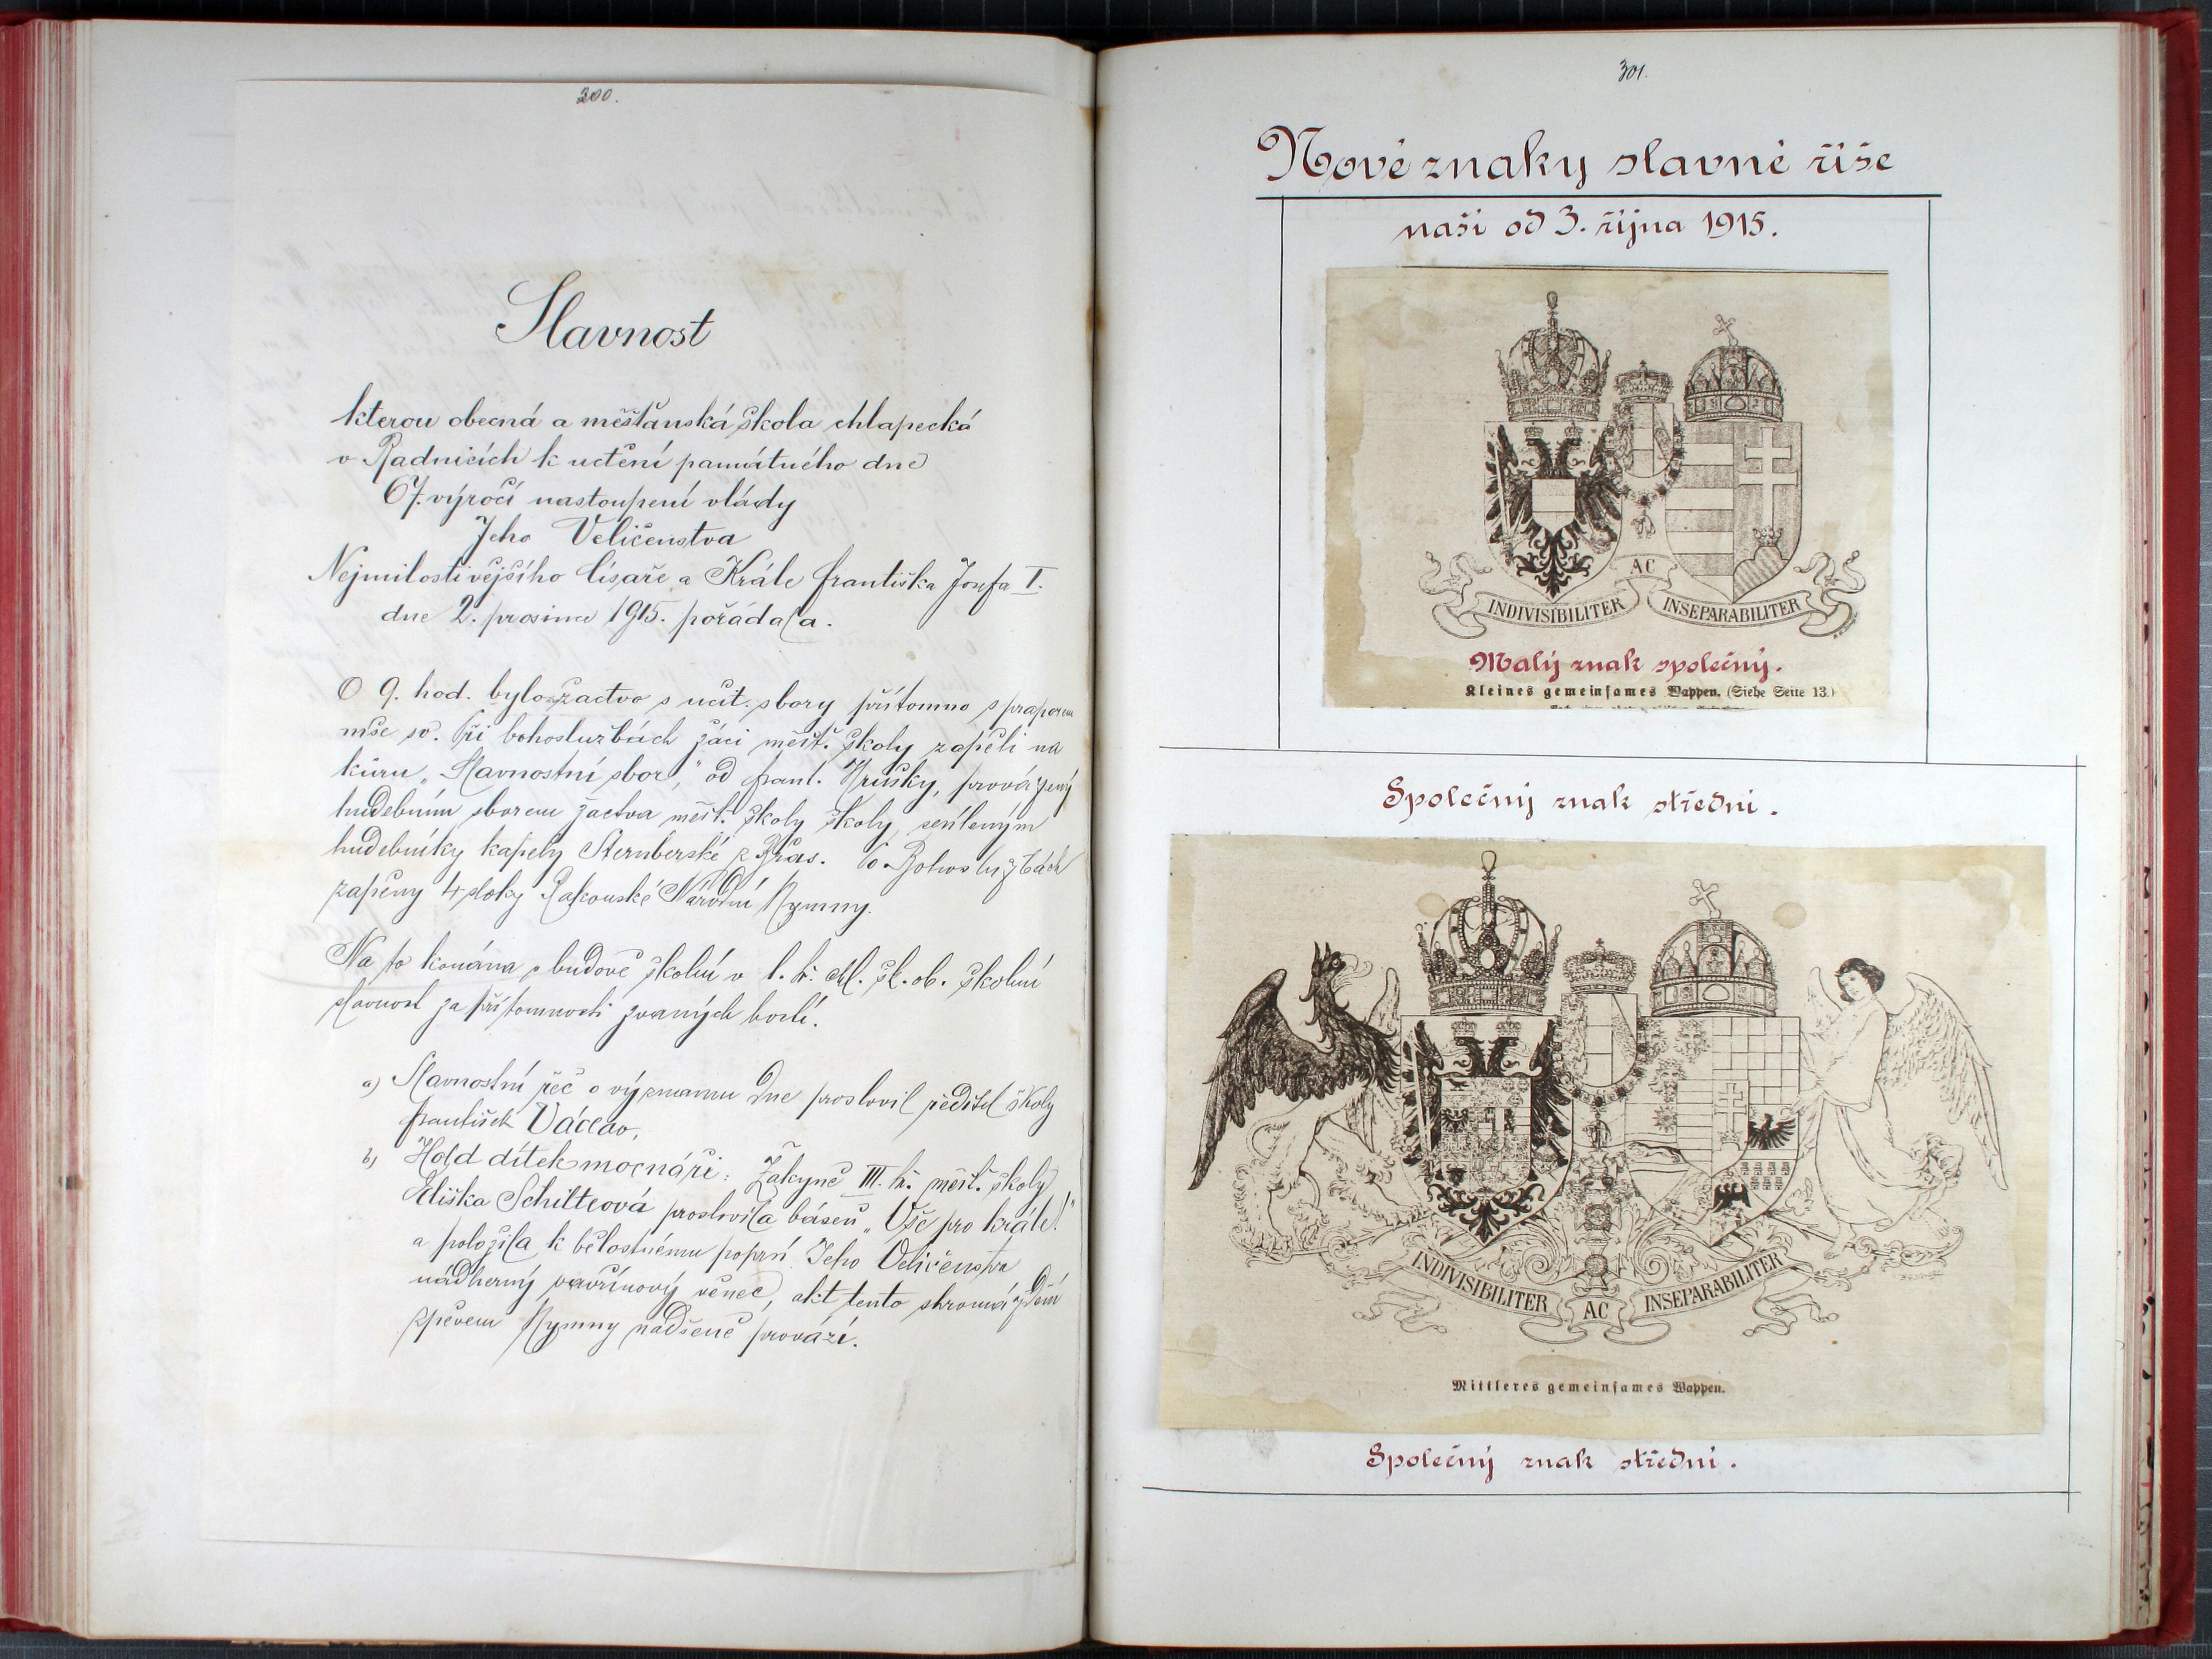 300.
Slavnost
kterou obecná a měšťanská škola chlapecká
v Radnicích k uctění památného dne
67. výročí nastoupení vlády
Jeho Veličenstva
Nejmilostivějšího Císaře a Krále Františka Josefa I.
dne 2. prosince 1915. pořádala.
O 9. hod. bylo žactvo s učit. sbory přítomno s praporem
mše sv. Při bohoslužbách žáci měšť. školy zapěli na
kůru „Slavnostní sbor," od Frant. Hrušky, provázený
hudebním sborem žactva měšť. školy školy, sesíleným
hudebníky kapely Šternberské z Břas. Po Bohoslužbách
zapěny 4 sloky Rakouské Národní Hymny.
Na to konána v budově školní v I. tř. chl. šk. ob. školní
slavnost za přítomnosti zvaných hostí.
a) Slavnostní řeč o významu Dne proslovil ředitel školy
František Václav.
b) Hold dítek mocnáři: Žákyně III. tř. měšť. školy
Eliška Schilterová proslovila báseň „Vše pro krále!"
a položila k bělostnému poprsí Jeho Veličenstva
nádherný vavřínový věnec, akt tento shromáždění
zpěvem Hymny nadšeně provází.
301.
Nové znaky slavné říše
naší od 3. října 1915.
AC
INDIVISIBILITER INSEPARABILITER
Malý znak společný.
Kleines gemeinsames Wappen. (Siehe Seite 13.)
Společný znak střední.
INDIVISIBILITER AC INSEPARABILITER
Mittleres gemeinsames Wappen.
Společný znak střední.